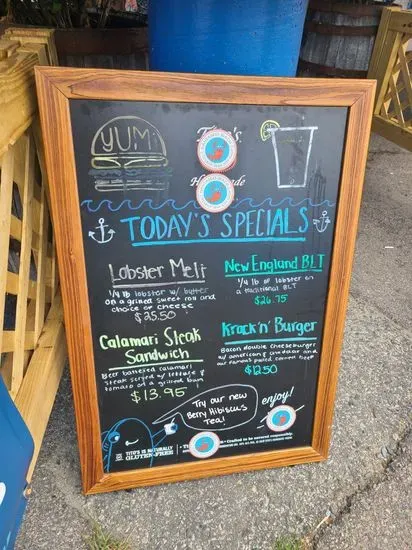 YUM!
Tito's
Handmade
TODAY'S SPECIALS
Lobster Melt
1/4 lb lobster w/ butter
on a grilled sweet roll and
choice of cheese
$25.50
New England BLT
1/4 lb of lobster on
a traditional BLT
$26.75
Calamari Steak
Sandwich
Beer battered calamari
steak served w/ lettuce &
tomato on a grilled bun
$13.95
Krack'n' Burger
Bacon double cheeseburger
w/ american & cheddar and
our famous pulled corned beef
$12.50
Try our new
Berry Hibiscus
Tea!
enjoy!
TITO'S IS NATURALLY
GLUTEN-FREE
Crafted to be savored responsibly.